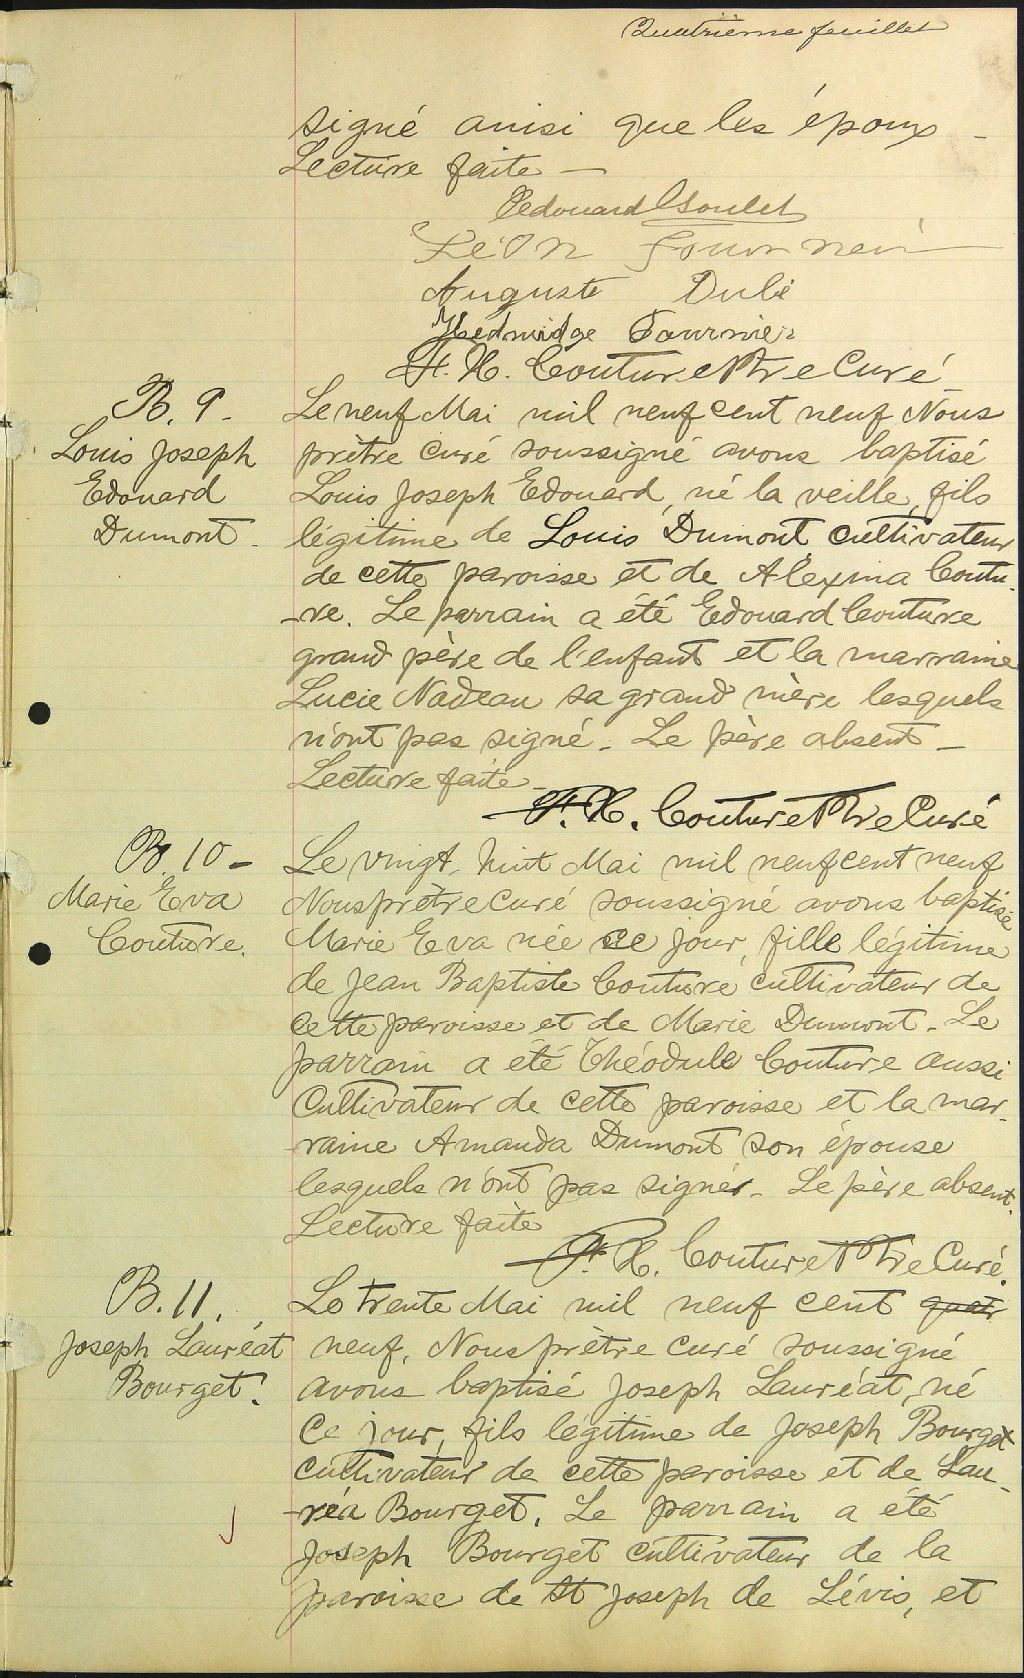 Quatrième feuillet
signé ainsi que les époux -
Lecture faite -
Edouard Goulet
Léon Fournier
Auguste Dubé
Hedwidge Fournier
F. X. Couture Ptre Curé
B. 9 -
Louis Joseph
Edouard
Dumont -
Le neuf Mai mil neuf cent neuf Nous
prêtre curé soussigné avons baptisé
Louis Joseph Edouard, né la veille, fils
légitime de Louis Dumont, cultivateur
de cette paroisse et de Alexina Coutu-
-re. Le parrain a été Edouard Couture
grand père de l'enfant et la marraine
Lucie Nadeau sa grand mère lesquels
n'ont pas signé - Le père absent -
Lecture faite -
F. X. Couture Ptre Curé
B. 10 -
Marie Eva
Couture.
Le vingt-huit Mai mil neuf cent neuf
Nous prêtre Curé soussigné avons baptisé
Marie Eva née ce jour, fille légitime
de Jean Baptiste Couture cultivateur de
cette paroisse et de Marie Dumont. Le
parrain a été Théodule Couture aussi
Cultivateur de cette paroisse et la mar-
-raine Amanda Dumont son épouse
lesquels n'ont pas signés - Le père absent.
Lecture faite
F. X. Couture Ptre Curé.
B. 11.
Joseph Lauréat
Bourget.
Le trente Mai mil neuf cent quatr
neuf, Nous prêtre curé soussigné
avons baptisé Joseph Lauréat, né
Ce jour, fils légitime de Joseph Bourget
cultivateur de cette paroisse et de Lau-
-réa Bourget. Le parrain a été
Joseph Bourget cultivateur de la
paroisse de St Joseph de Lévis, et